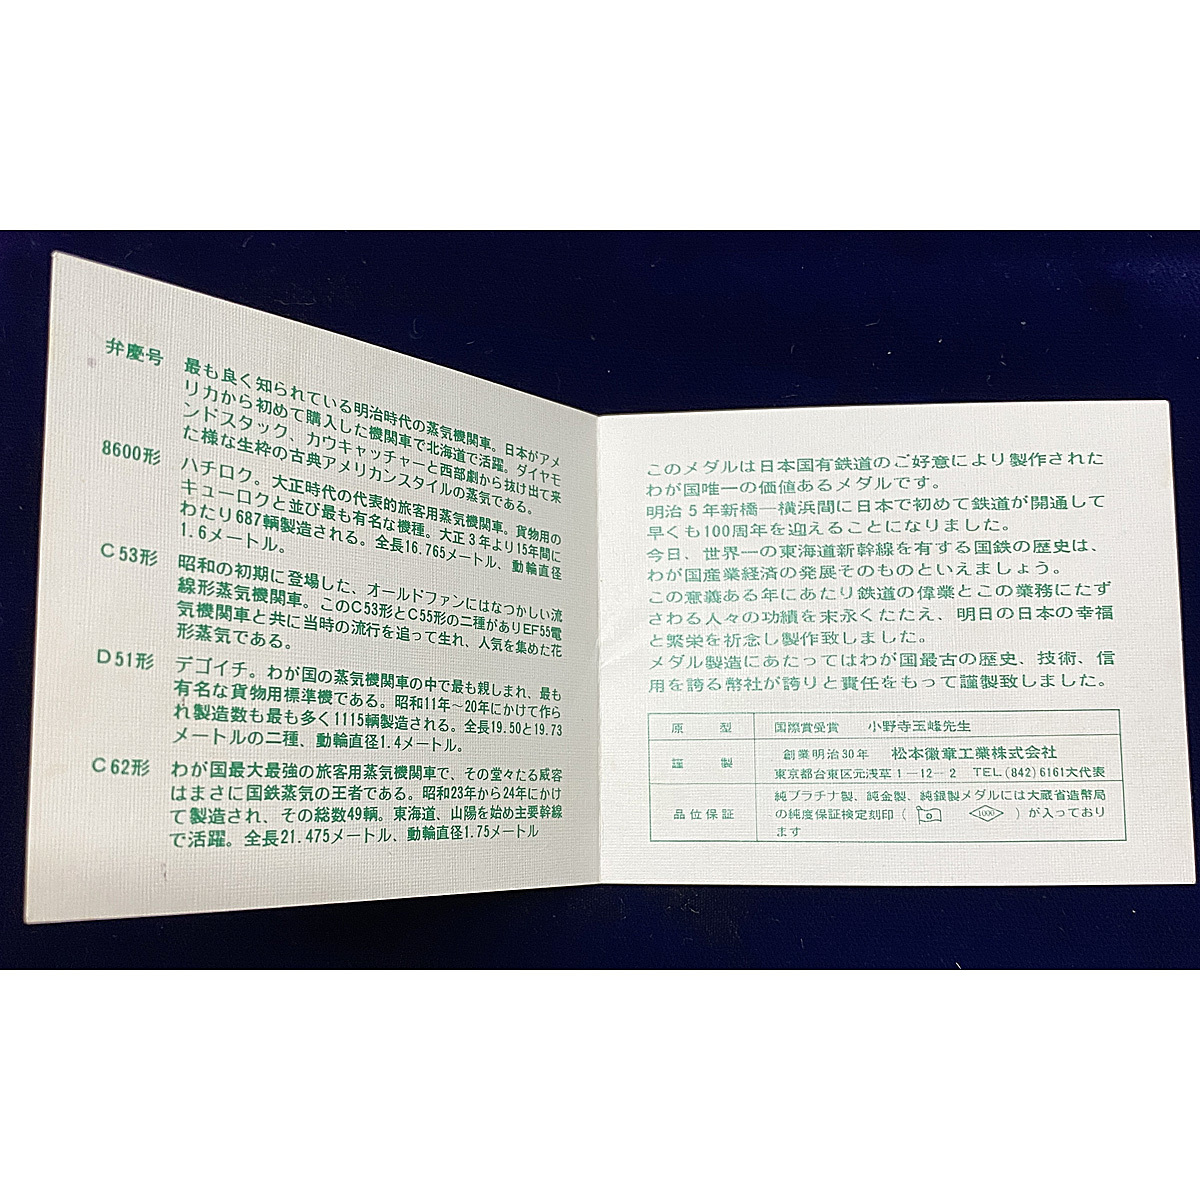 弁慶号 最も良く知られている明治時代の蒸気機関車。日本がアメ
リカから初めて購入した機関車で北海道で活躍。ダイヤモ
ンドスタック、カウキャッチャーと西部劇から抜け出て来
た様な生枠の古典アメリカンスタイルの蒸気である。
8600形 ハチロク。大正時代の代表的旅客用蒸気機関車。貨物用の
キューロクと並び最も有名な機種。大正3年より15年間に
わたり687輌製造される。全長16.765メートル、動輪直径
1.6メートル。
C53形 昭和の初期に登場した、オールドファンにはなつかしい流
線形蒸気機関車。このC53形とC55形の二種がありEF55電
気機関車と共に当時の流行を追って生れ、人気を集めた花
形蒸気である。
D51形 デゴイチ。わが国の蒸気機関車の中で最も親しまれ、最も
有名な貨物用標準機である。昭和11年〜20年にかけて作ら
れ製造数も最も多く1115輌製造される。全長19.50と19.73
メートルの二種、動輪直径1.4メートル。
C62形 わが国最大最強の旅客用蒸気機関車で、その堂々たる威容
はまさに国鉄蒸気の王者である。昭和23年から24年にかけ
て製造され、その総数49輌。東海道、山陽を始め主要幹線
で活躍。全長21.475メートル、動輪直径1.75メートル
このメダルは日本国有鉄道のご好意により製作された
わが国唯一の価値あるメダルです。
明治5年新橋―横浜間に日本で初めて鉄道が開通して
早くも100周年を迎えることになりました。
今日、世界一の東海道新幹線を有する国鉄の歴史は、
わが国産業経済の発展そのものといえましょう。
この意義ある年にあたり鉄道の偉業とこの業務にたず
さわる人々の功績を末永くたたえ、明日の日本の幸福
と繁栄を祈念し製作致しました。
メダル製造にあたってはわが国最古の歴史、技術、信
用を誇る幣社が誇りと責任をもって謹製致しました。
原型 国際賞受賞 小野寺玉峰先生
謹製 創業明治30年 松本徽章工業株式会社
東京都台東区元浅草1－12－2 TEL(842)6161大代表
品位保証 純プラチナ製、純金製、純銀製メダルには大蔵省造幣局
の純度保証検定刻印( 1000 )が入っており
ます